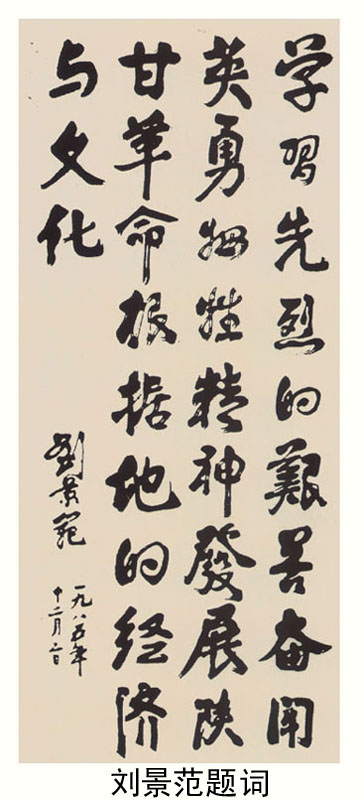 学習先烈的艱苦奋鬥
英勇牺牲精神發展陕
甘革命根据地的经济
与文化
劉景範
一九八五年
十二月二日
刘景范题词